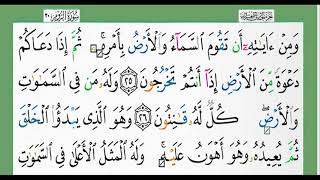 سُورَةُ الرُّومِ ٣٠
وَمِنْ ءَايَٰتِهِۦٓ أَن تَقُومَ ٱلسَّمَآءُ وَٱلْأَرْضُ بِأَمْرِهِۦ ۚ ثُمَّ إِذَا دَعَاكُمْ
دَعْوَةً مِّنَ ٱلْأَرْضِ إِذَآ أَنتُمْ تَخْرُجُونَ ٢٥ وَلَهُۥ مَن فِى ٱلسَّمَٰوَٰتِ
وَٱلْأَرْضِ ۖ كُلٌّ لَّهُۥ قَٰنِتُونَ ٢٦ وَهُوَ ٱلَّذِى يَبْدَؤُا۟ ٱلْخَلْقَ
ثُمَّ يُعِيدُهُۥ وَهُوَ أَهْوَنُ عَلَيْهِ ۚ وَلَهُ ٱلْمَثَلُ ٱلْأَعْلَىٰ فِى ٱلسَّمَٰوَٰتِ